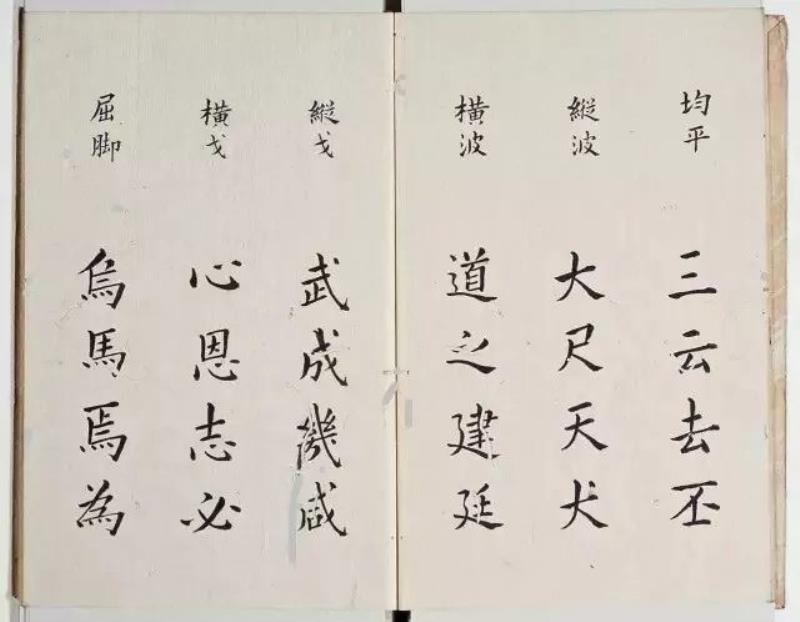 均平
三云去丕
縱波
大尺天犬
橫波
道之建延
縱戈
武成幾咸
橫戈
心恩志必
屈脚
烏馬焉為